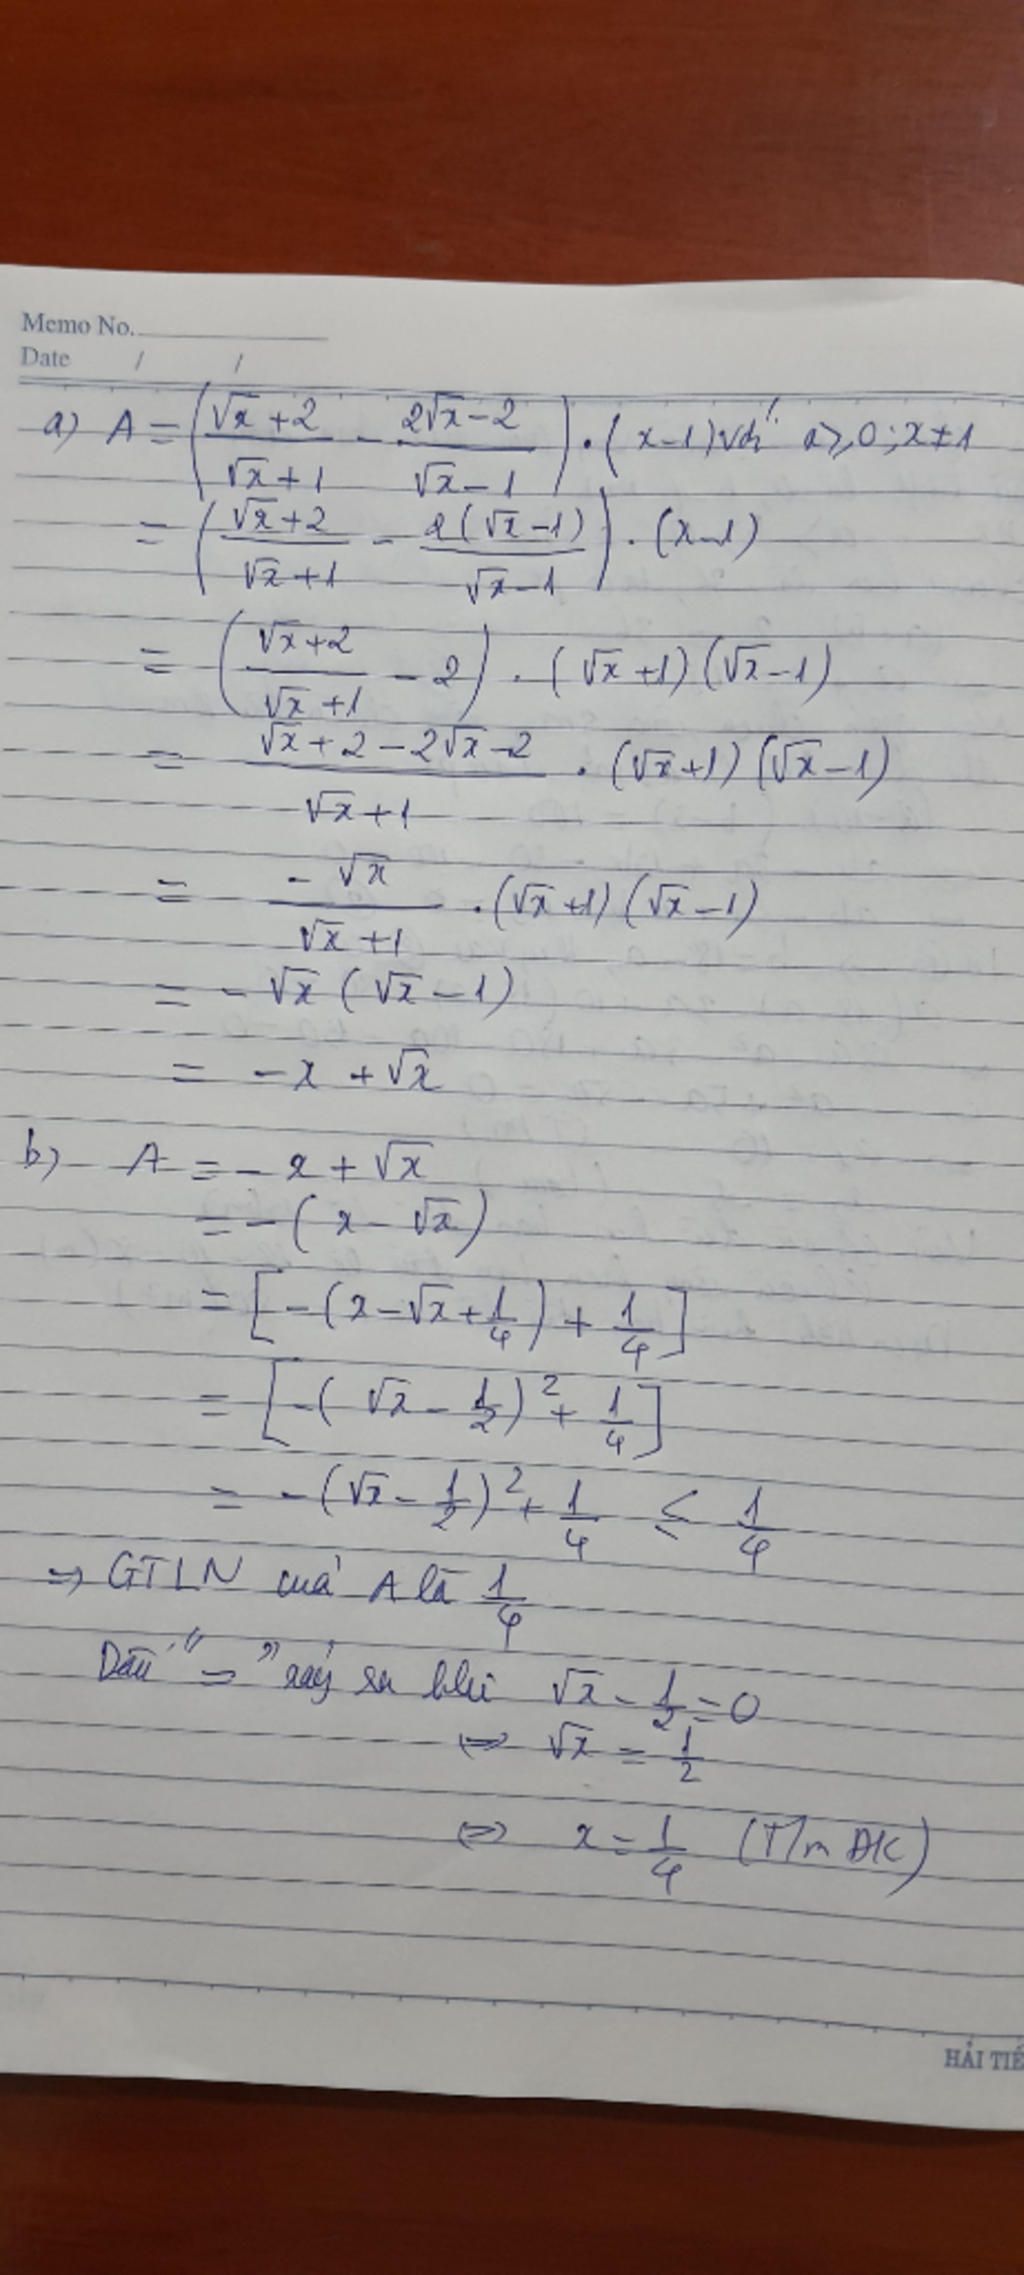 Memo No.
Date / /
a) A = ( (√x + 2)/(√x + 1) - (2√x - 2)/(√x - 1) ) . (x - 1) với x ≥ 0 ; x ≠ 1
= ( (√x + 2)/(√x + 1) - 2(√x - 1)/(√x - 1) ) . (x - 1)
= ( (√x + 2)/(√x + 1) - 2 ) . (√x + 1) (√x - 1)
= (√x + 2 - 2√x - 2)/(√x + 1) . (√x + 1) (√x - 1)
= (- √x)/(√x + 1) . (√x + 1) (√x - 1)
= - √x (√x - 1)
= - x + √x
b) A = - x + √x
= - ( x - √x )
= [ - (x - √x + 1/4) + 1/4 ]
= [ - ( √x - 1/2 )² + 1/4 ]
= - (√x - 1/2)² + 1/4 ≤ 1/4
=> GTLN của A là 1/4
Dấu " = " xảy ra khi √x - 1/2 = 0
<=> √x = 1/2
<=> x = 1/4 (T/m ĐK)
HẢI TIẾ